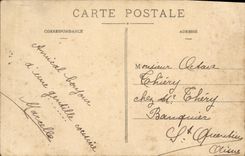 CARTE POSTALE
CORRESPONDANCE
ADRESSE
Amical bonjour
à une gentille
Marcelle
Monsieur Octave
Thiéry
chez Mr Thiéry
Banquier
St Quentin
Aisne